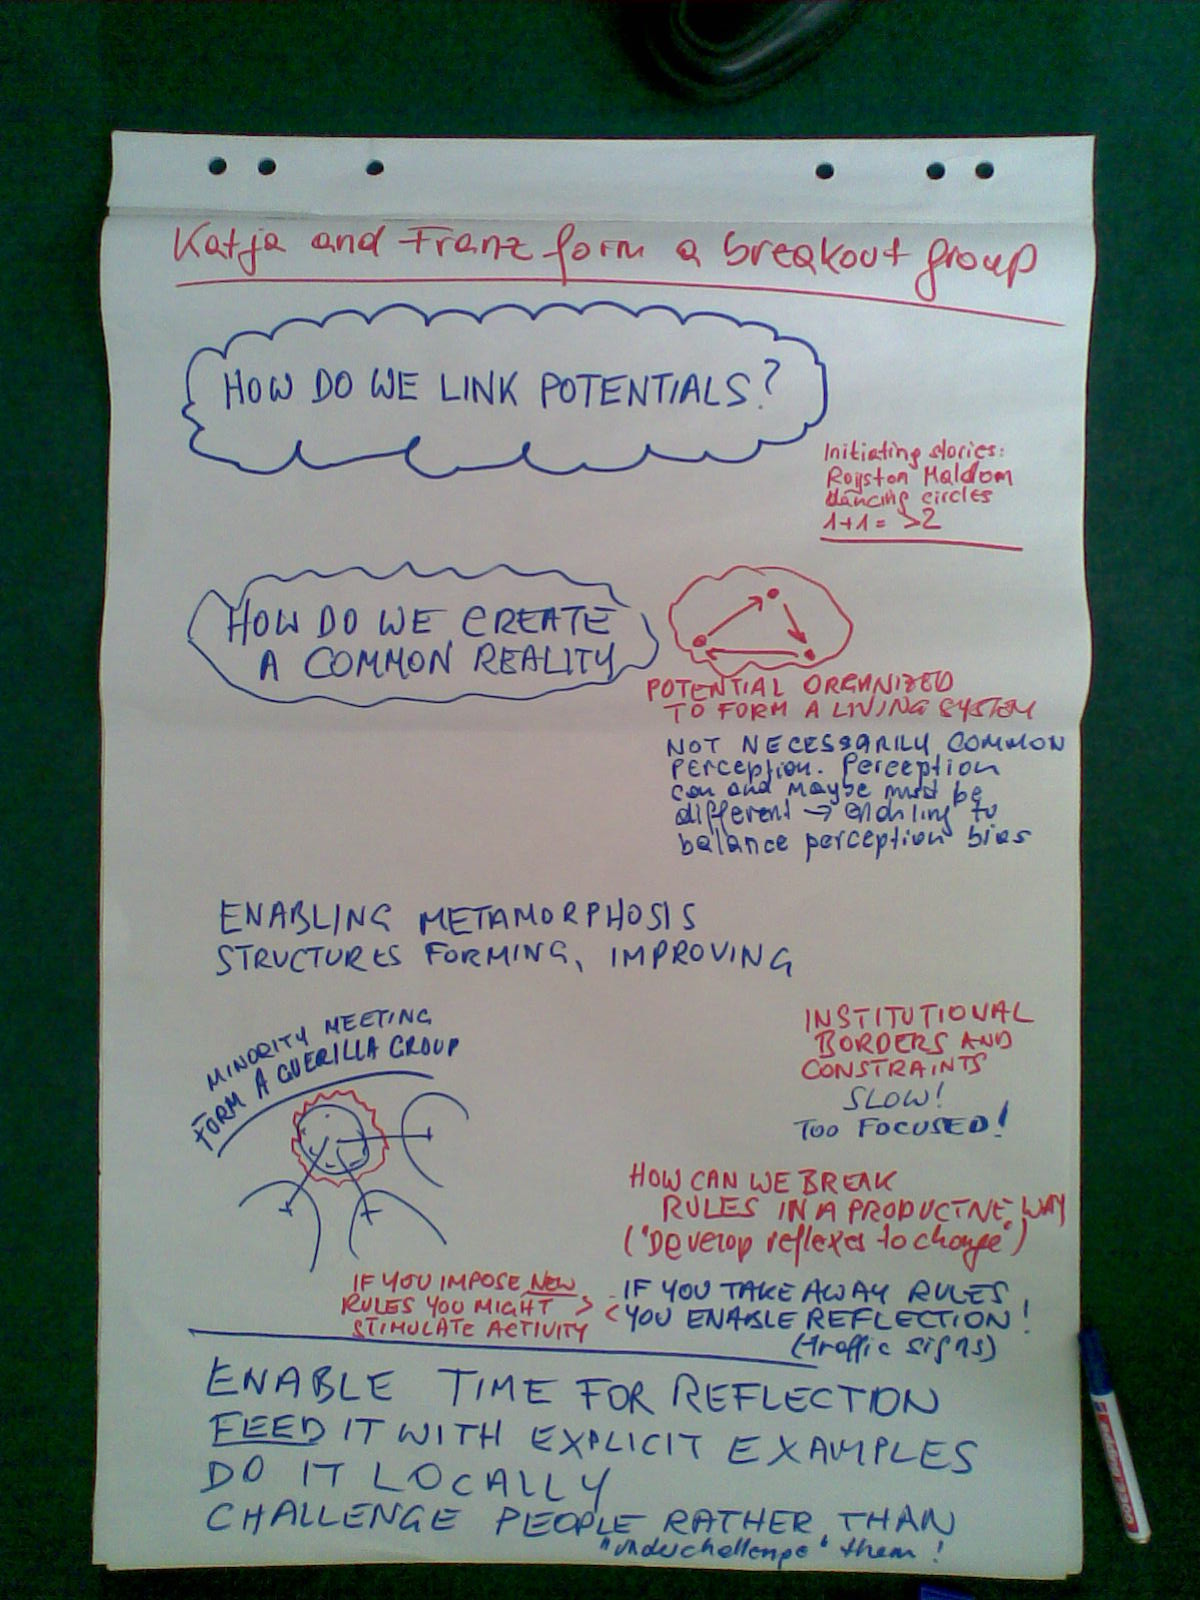 Katja and Franz form a breakout group
HOW DO WE LINK POTENTIALS?
Initiating stories:
Royston Maldom
dancing circles
1+1= >2
HOW DO WE CREATE
A COMMON REALITY
POTENTIAL ORGANIZED
TO FORM A LIVING SYSTEM
NOT NECESSARILY COMMON
perception. Perception
can and maybe must be
different → enabling to
balance perception bias
ENABLING METAMORPHOSIS
STRUCTURES FORMING, IMPROVING
MINORITY MEETING
FORM A GUERILLA GROUP
INSTITUTIONAL
BORDERS AND
CONSTRAINTS
SLOW!
TOO FOCUSED!
HOW CAN WE BREAK
RULES IN A PRODUCTIVE WAY
("Develop reflexes to change")
IF YOU IMPOSE NEW
RULES YOU MIGHT >
STIMULATE ACTIVITY
IF YOU TAKE AWAY RULES
< YOU ENABLE REFLECTION!
(traffic signs)
ENABLE TIME FOR REFLECTION
FEED IT WITH EXPLICIT EXAMPLES
DO IT LOCALLY
CHALLENGE PEOPLE RATHER THAN
"underchallenge" them!